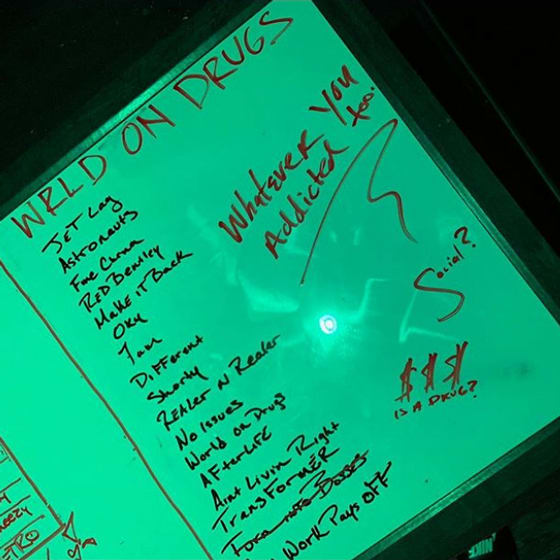 WRLD ON DRUGS
JET Lag
Astronauts
Fine China
RED Bentley
Make it Back
Oky
7am
Different
Shorty
REALER N Realer
No Issues
World on Drugs
AFterLIFE
Aint Livin Right
TransFormER
Hard Work Pays OFF
Whatever You
Addicted too.
Social?
$$$
IS A DRUG?